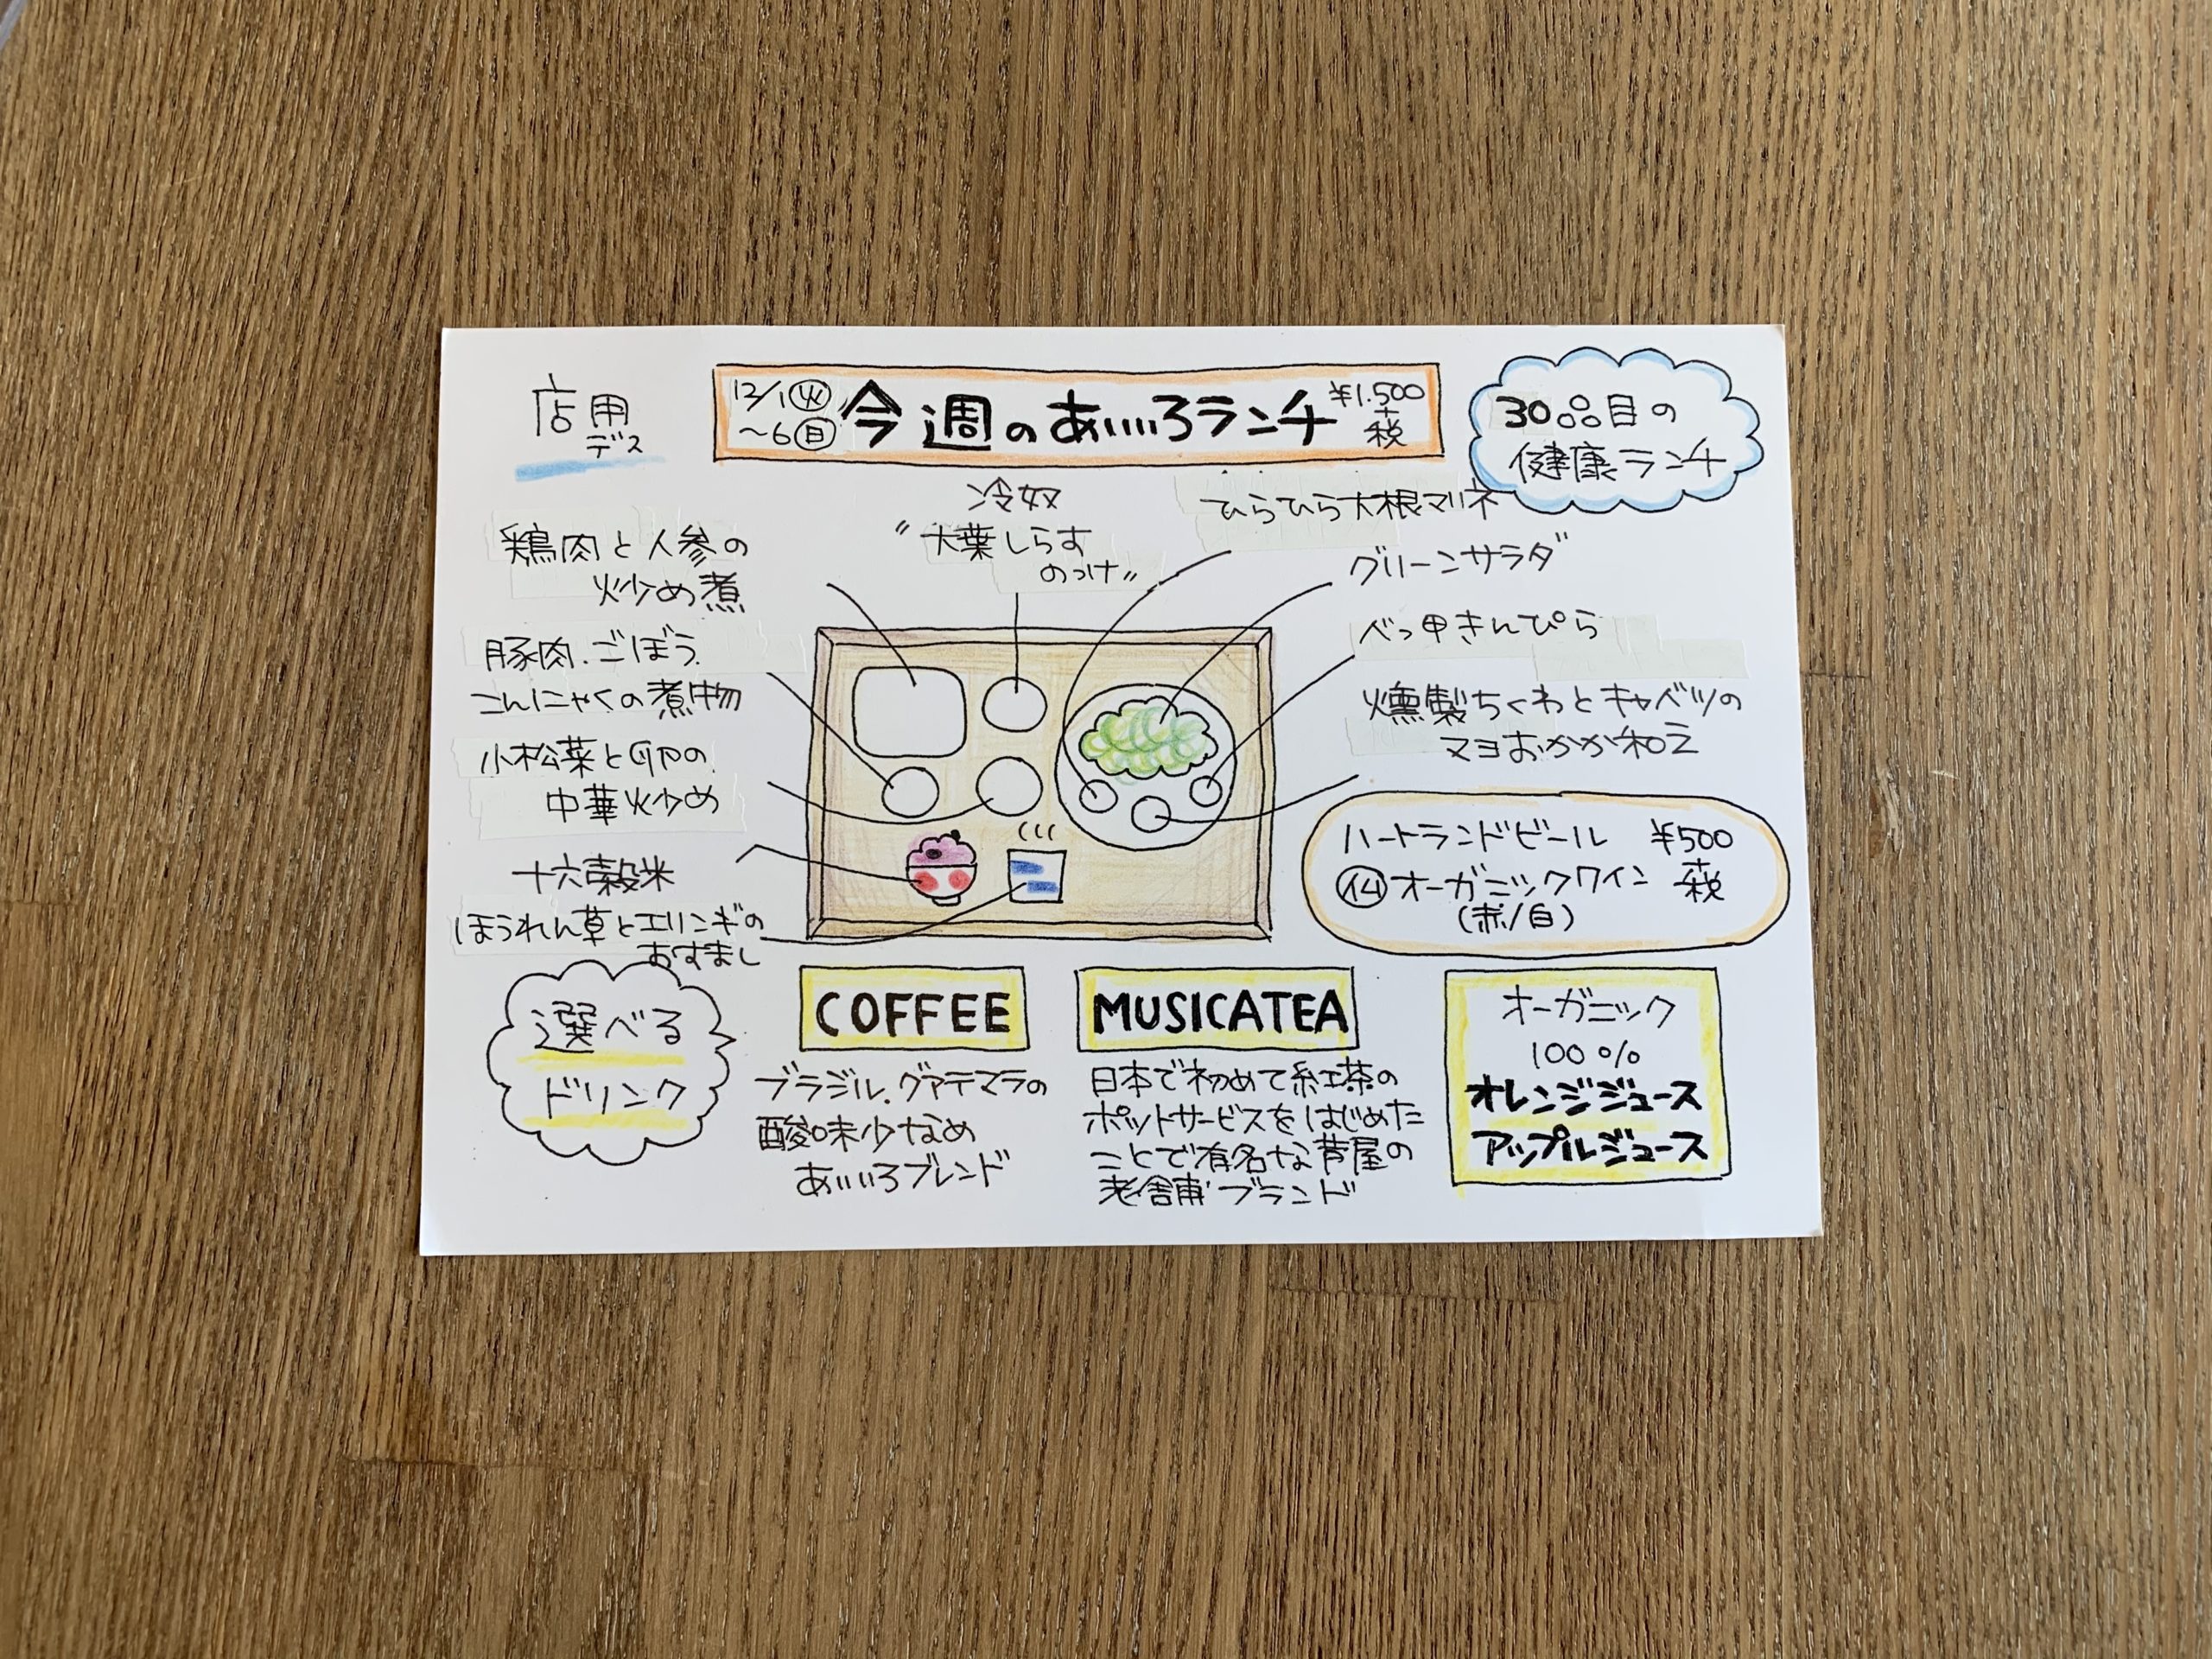 店用
デス
12/1㊋
～6㊐
今週のあいいろランチ
¥1.500
+税
30品目の
健康ランチ
鶏肉と人参の
炒め煮
豚肉.ごぼう.
こんにゃくの煮物
小松菜と卵の
中華炒め
十六穀米
ほうれん草とエリンギの
おすまし
冷奴
〝大葉しらす
のっけ〟
ひらひら大根マリネ
グリーンサラダ
べっ甲きんぴら
燻製ちくわとキャベツの
マヨおかか和え
ハートランドビール ¥500
オーガニックワイン +税
(赤/白)
選べる
ドリンク
COFFEE
ブラジル.グアテマラの
酸味少なめ
あいいろブレンド
MUSICATEA
日本で初めて紅茶の
ポットサービスをはじめた
ことで有名な芦屋の
老舗ブランド
オーガニック
100%
オレンジジュース
アップルジュース